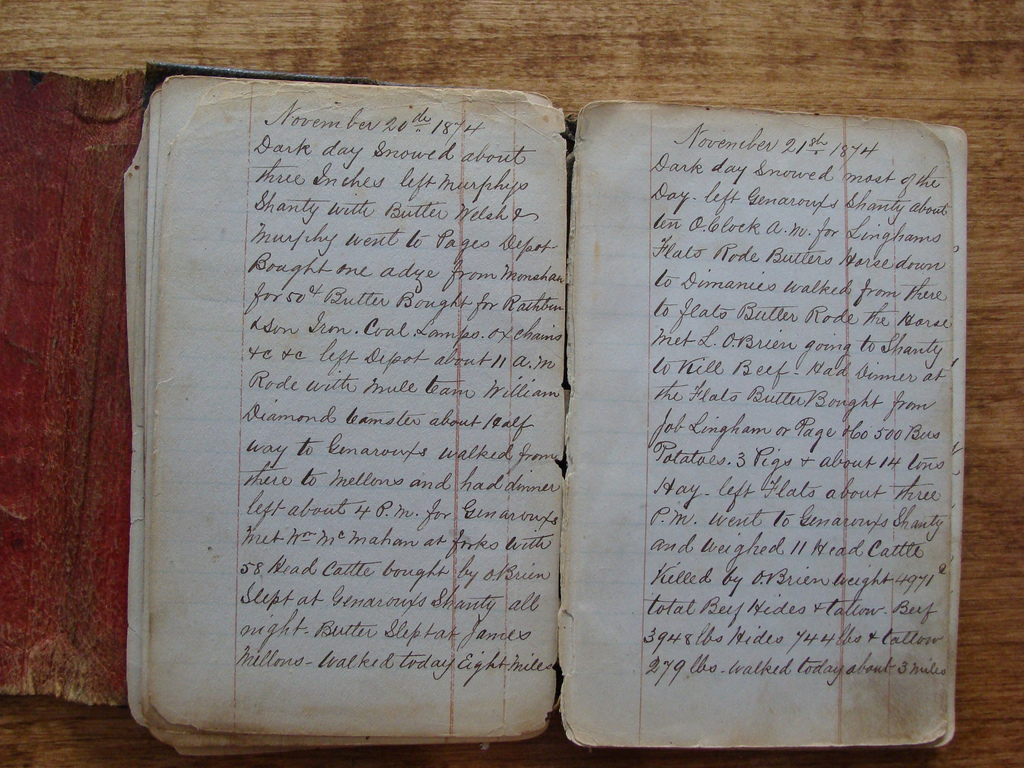 November 20th 1874
Dark day Snowed about
three Inches left Murphys
Shanty with Butler Welsh &
Murphy went to Pages Depot
Bought one adze from Monshan
for 50¢ Butler Bought for Rathbun
& Son Iron. Coal. Lamps. ox chains
&c &c left Depot about 11 A.M
Rode with mule team William
Diamond teamster about Half
way to Genarouxs walked from
there to Mellons and had dinner
left about 4 P.M. for Genarouxs
Met Wm McMahan at forks with
58 Head Cattle bought by O.Brien
Slept at Genarouxs Shanty all
night. Butler Slept at James
Mellons - walked today Eight Miles
November 21st 1874
Dark day Snowed most of the
Day. left Genarouxs Shanty about
ten O.Clock A.M. for Linghams
Flats Rode Butlers Horse down
to Dimanies walked from there
to flats Butler Rode the Horse
Met L. O.Brien going to Shanty
to Kill Beef. Had Dinner at
the Flats Butler Bought from
Job Lingham or Page &co 500 Bus
Potatoes. 3 Pigs & about 14 tons
Hay - left Flats about three
P.M. went to Genarouxs Shanty
and weighed 11 Head Cattle
Killed by O.Brien weight 4971
total Beef Hides & tallow. Beef
3948 lbs Hides 744 lbs & tallow
279 lbs - walked today about 3 miles